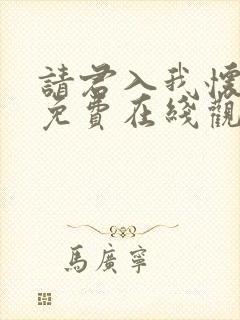 請君入我懷
免費在綫觀
馬廣寧